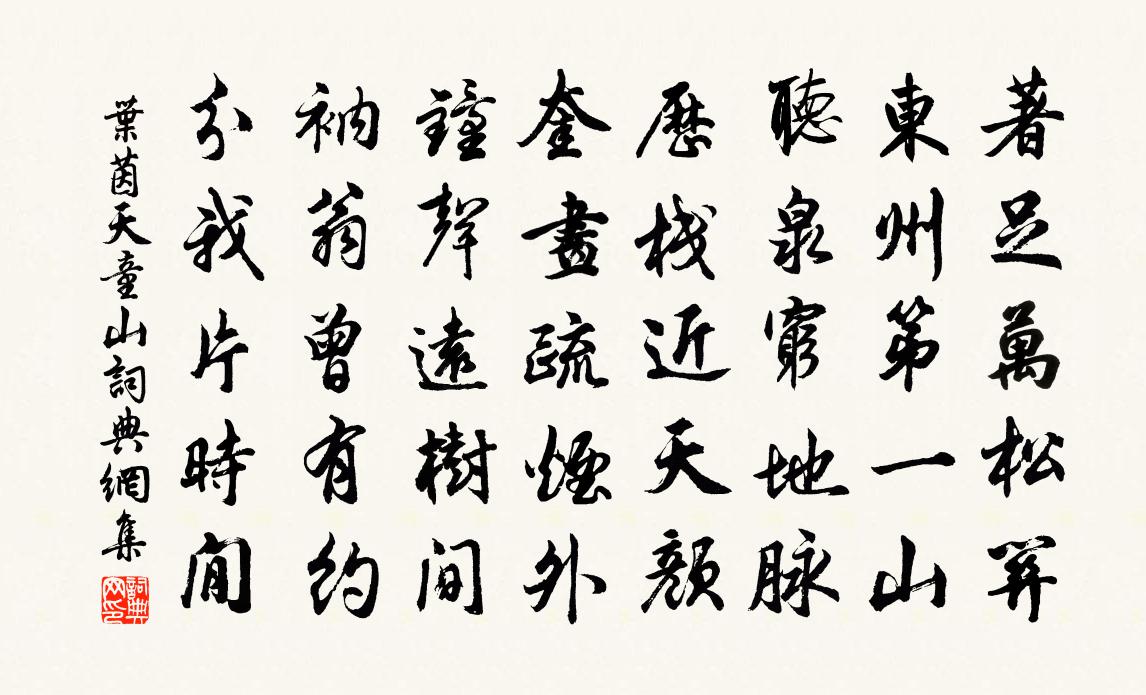 著足萬松關
東州第一山
聽泉窮地脉
歷棧近天顏
奎畫疏煙外
鐘聲遠樹間
衲翁曾有約
分我片時閒
葉茵天童山詞典網集
詞典网印